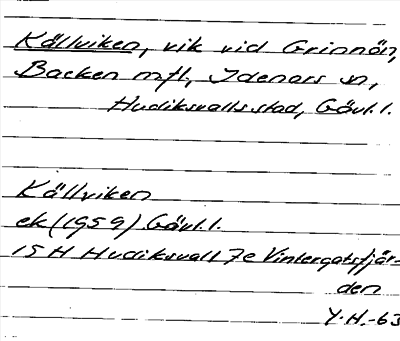 Källviken, vik vid Grinnön,
Backen mfl, Idenors sn,
Hudiksvalls stad, Gävl. l.
Källviken
ek (1959) Gävl. l.
15 H Hudiksvall 7e Vintergatsfjär-
den
Y. H. -63